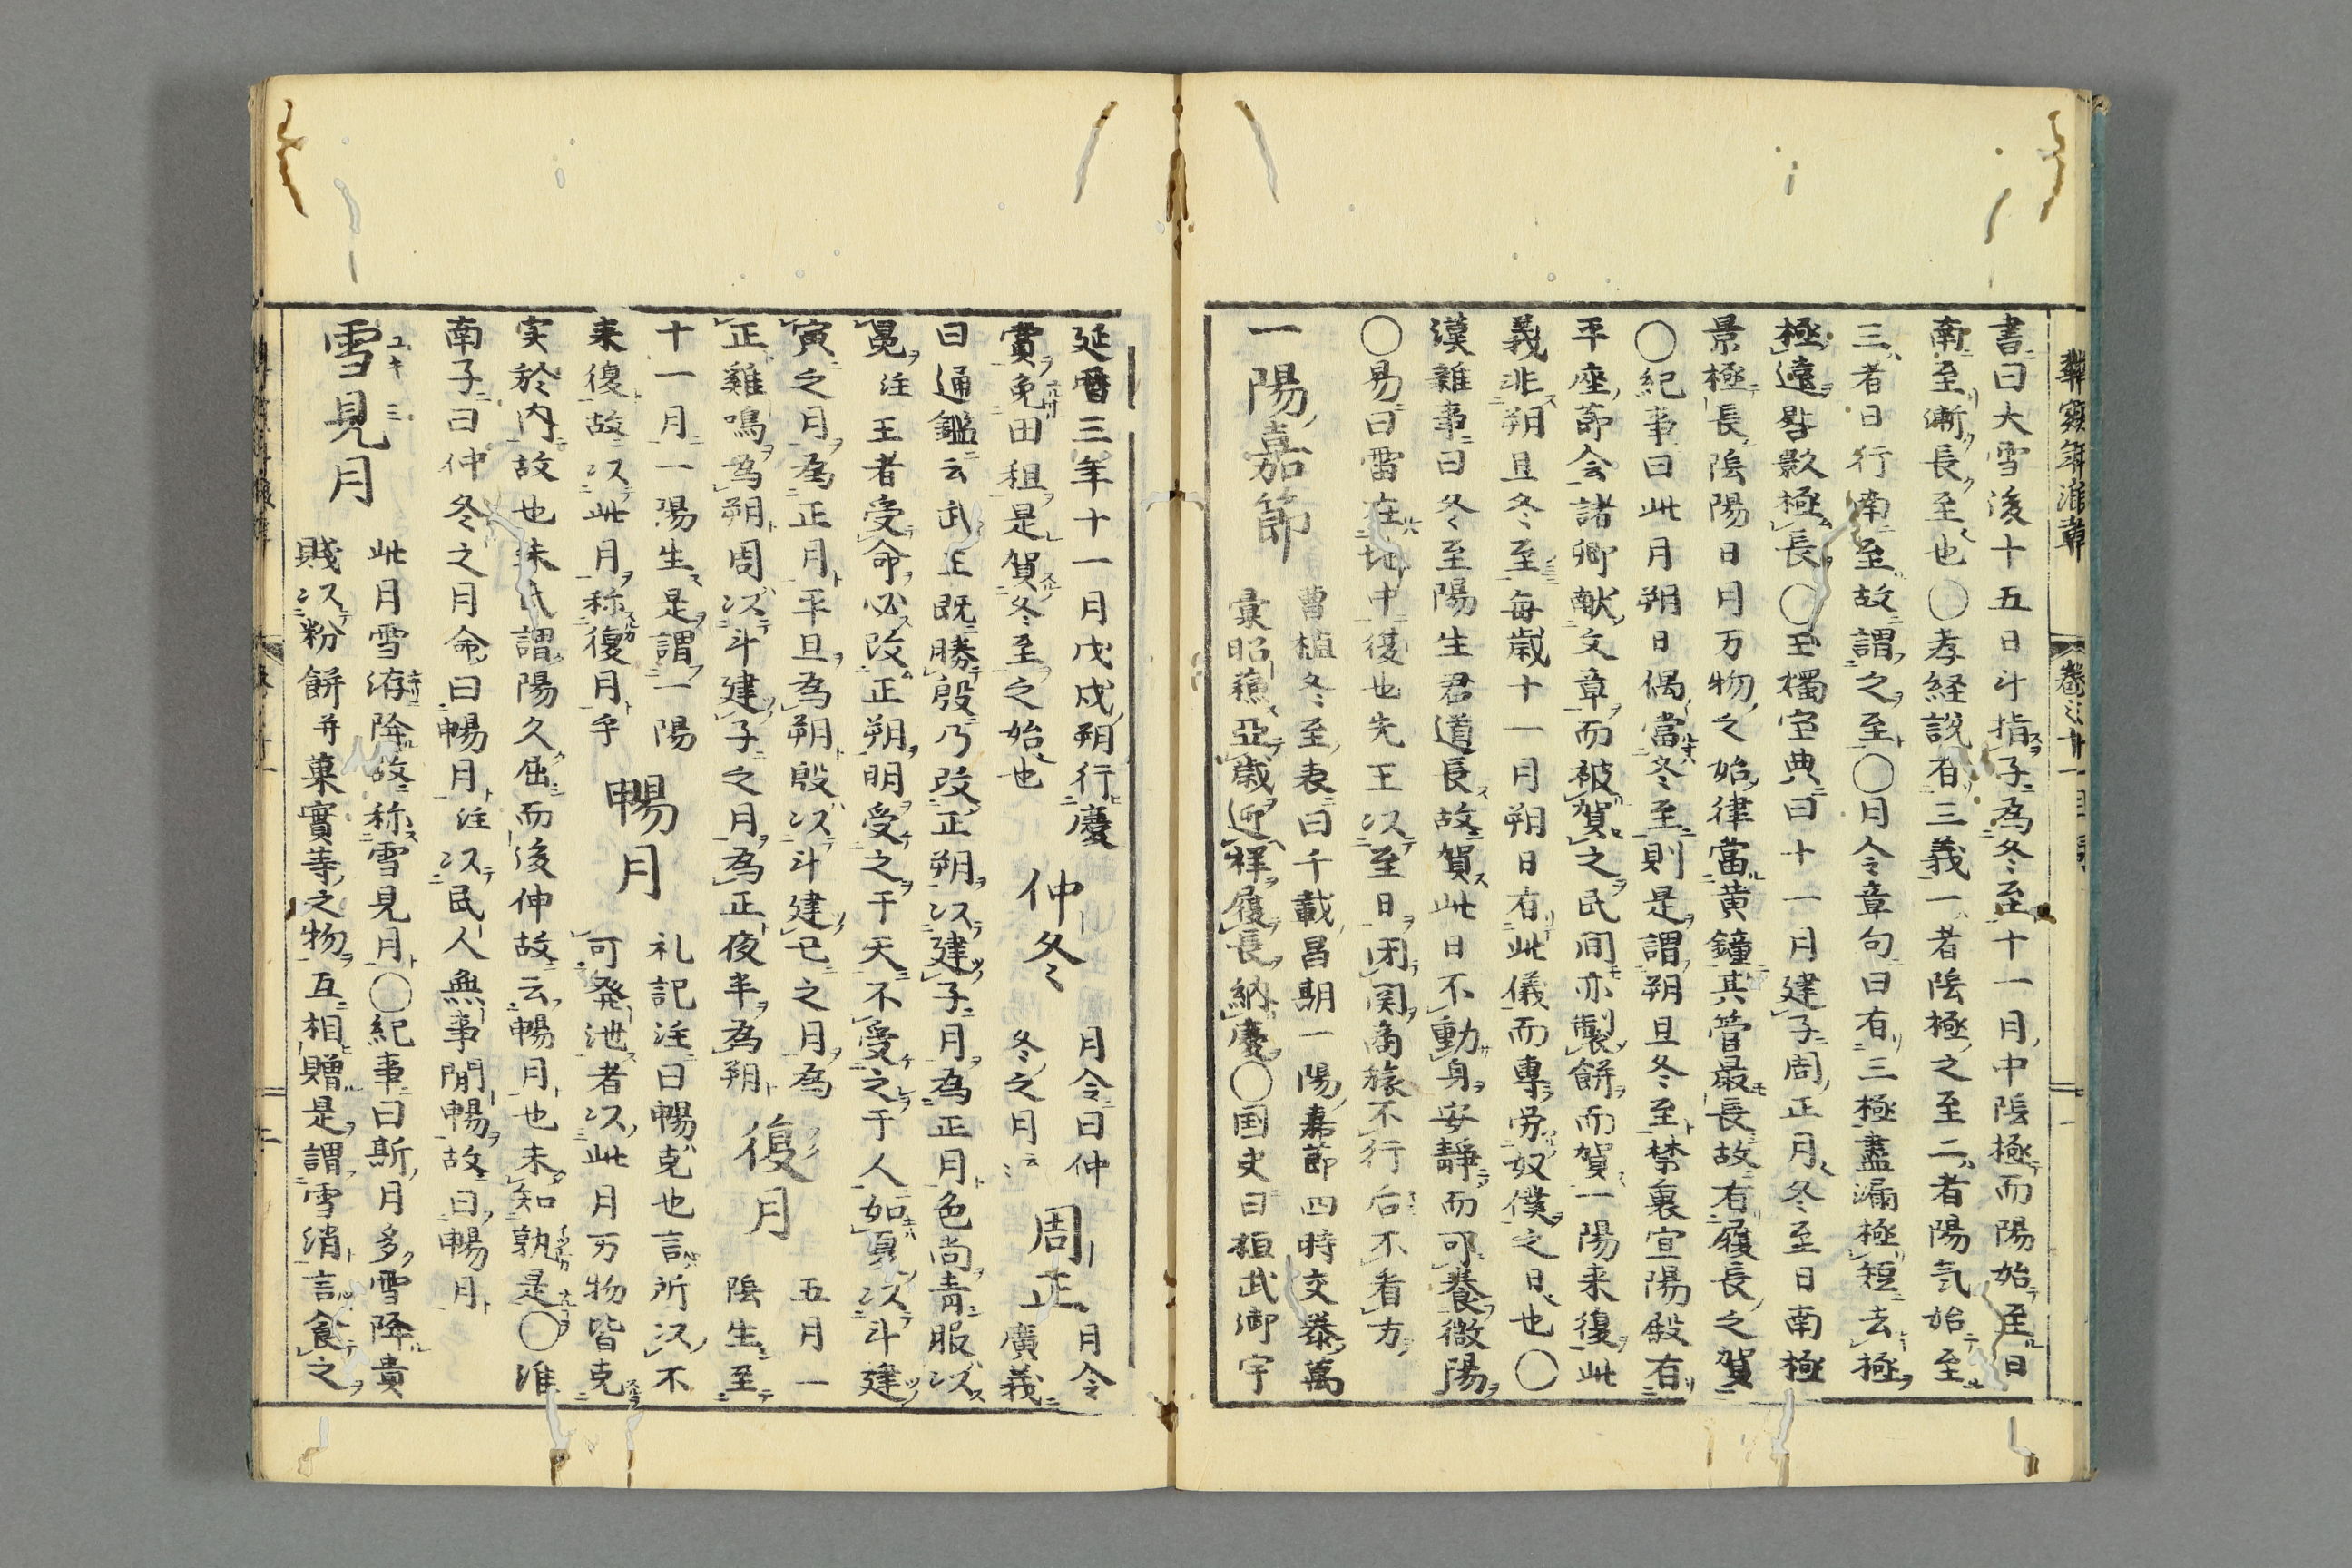 書曰大雪後十五日斗指子為冬至十一月中陰極而陽始至日
南至漸長至也○孝経説有三義一者陰極之至二者陽気始至
三者日行南至故謂之至○月令章句曰有三極晝漏極短去極
極遠晷影極長○玉燭宝典曰十一月建子周正月冬至日南極
景極長陰陽日月万物之始律當黄鐘其管最長故有履長之賀
○紀事曰此月朔日偶當冬至則是謂朔旦冬至禁裏宣陽殿有
平座節会諸卿献文章而被賀之民間亦製餅而賀一陽来復此
義非朔旦冬至毎歳十一月朔日有此儀而專労奴僕之日也○
漢雜事曰冬至陽生君道長故賀此日不動身安静而可養微陽
○易曰雷在地中復也先王以至日閉関商旅不行后不省方
一陽嘉節
曹植冬至表曰千載昌期一陽嘉節四時交泰萬
彙昭蘓亞歳迎祥履長納慶○国史曰桓武御宇
延暦三年十一月戊戌朔行慶
賞免田租是賀冬至之始也
仲冬
月令曰仲
冬之月云
周正
月令
廣義
曰通鑑云武王既勝殷乃改正朔以建子月為正月色尚青服以
冕注王者受命必改正朔明受之于天不受之于人如夏以斗建
寅之月為正月平旦為朔殷以斗建丑之月為
正雞鳴為朔周以斗建子之月為正夜半為朔
復月
五月一
陰生至
十一月一陽生是謂一陽
来復故以此月称復月乎
暢月
礼記注曰暢充也言所以不
可発泄者以此月万物皆充
実於内故也朱氏謂陽久屈而後伸故云暢月也未知孰是○淮
南子曰仲冬之月命曰暢月注以民人無事閒暢故曰暢月
雪見月
此月雪洊降故称雪見月○紀事曰斯月多雪降貴
賤以粉餅并菓實等之物互相贈是謂雪消言食之